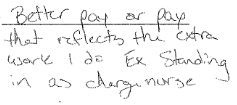 Better pay or pay
that reflects the extra
work I do Ex Standing
in as charge nurse